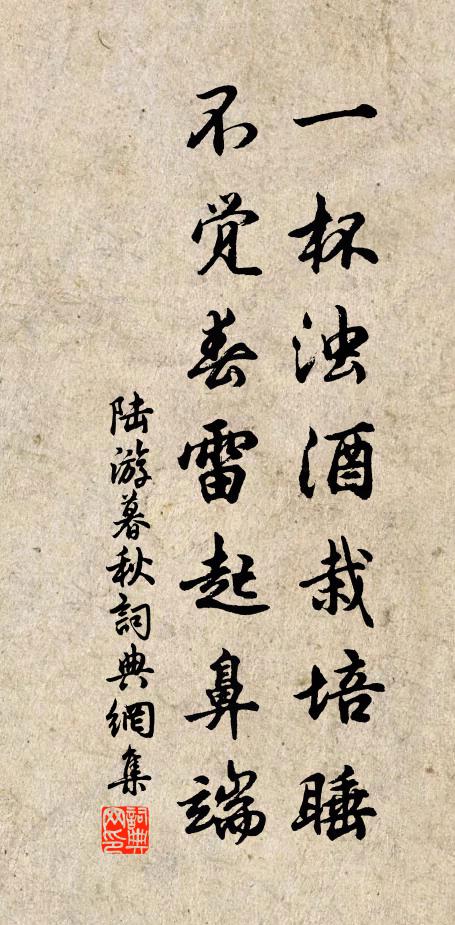 一杯浊酒栽培睡
不觉春雷起鼻端
陆游暮秋詞典網集
詞典网印